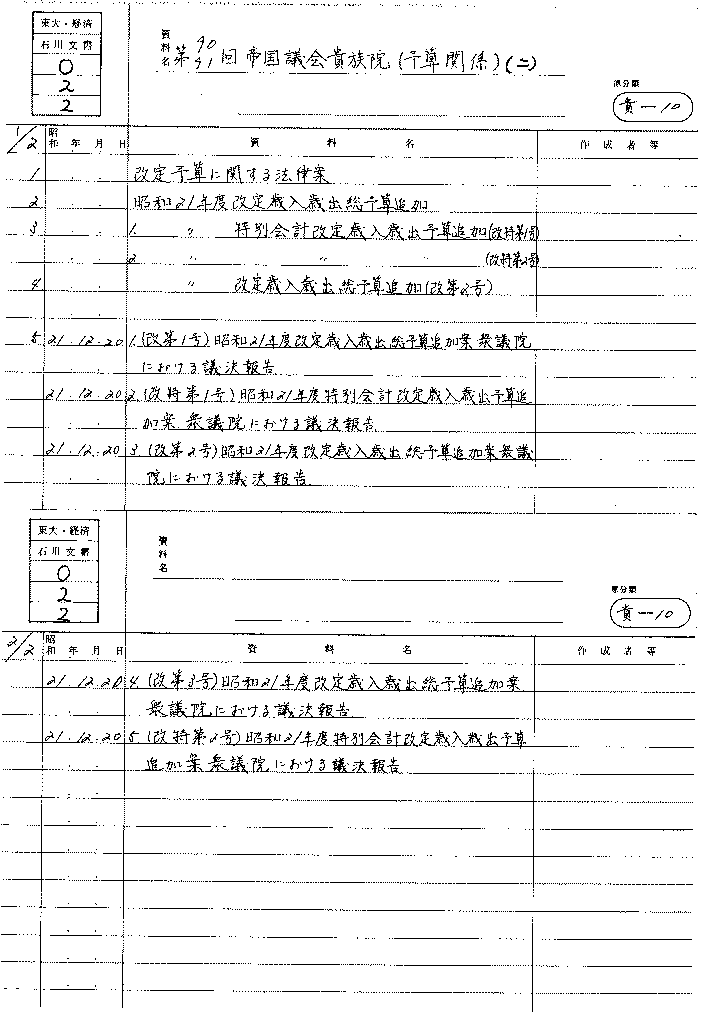 東大・経済
石川文書
0
2
2
資料名
第90 91回帝国議会貴族院(予算関係)(二)
原分類
貴―10
1/2
昭和 年 月 日
資 料 名
作 成 者 等
1 改定予算に関する法律案
2 昭和21年度改定歳入歳出総予算追加
3 1. 〃 特別会計改定歳入歳出予算追加(改特第1号)
2. 〃 〃 〃 (改特第2号)
4 〃 改定歳入歳出総予算追加(改第2号)
5 21.12.20 1.(改第1号)昭和21年度改定歳入歳出総予算追加案衆議院
における議決報告
21.12.20 2.(改特第1号)昭和21年度特別会計改定歳入歳出予算追
加案衆議院における議決報告
21.12.20 3.(改第2号)昭和21年度改定歳入歳出総予算追加案衆議
院における議決報告
東大・経済
石川文書
0
2
2
資料名
原分類
貴―10
2/2
昭和 年 月 日
資 料 名
作 成 者 等
21.12.20 4.(改第3号)昭和21年度改定歳入歳出総予算追加案
衆議院における議決報告
21.12.20 5.(改特第2号)昭和21年度特別会計改定歳入歳出予算
追加案衆議院における議決報告